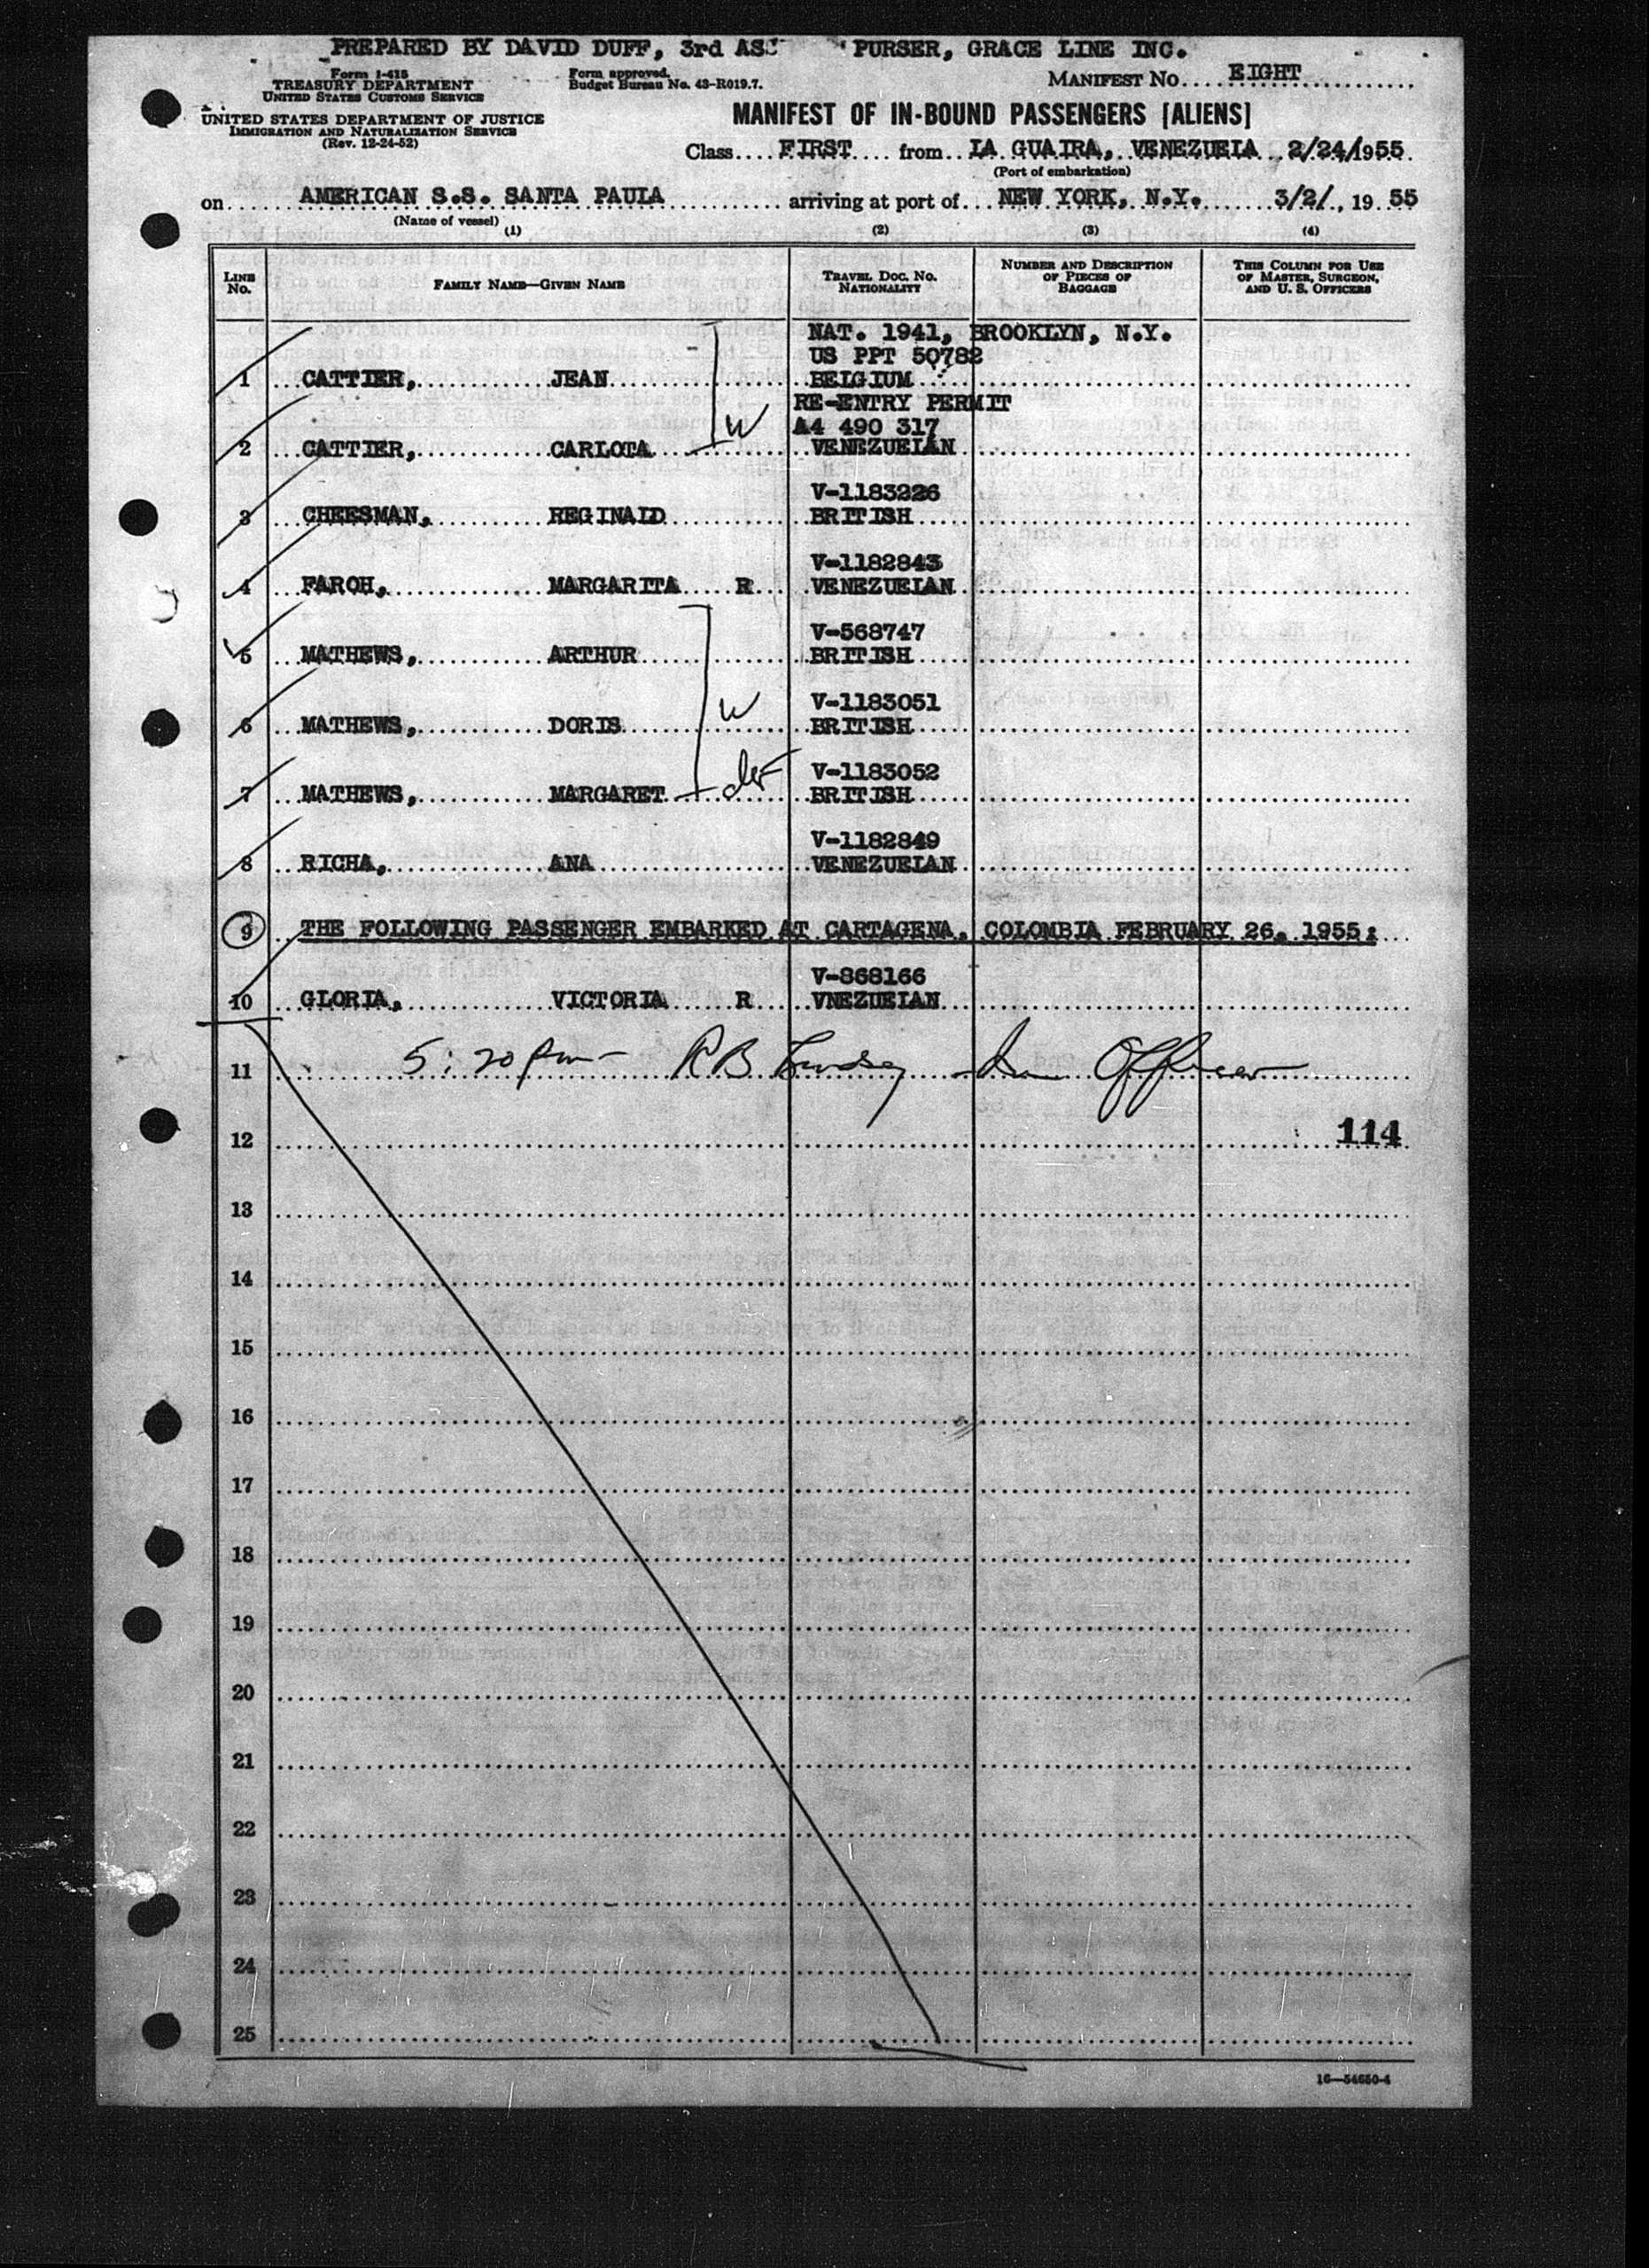 PREPARED BY DAVID DUFF, 3rd AS PURSER, GRACE LINE INC.
Form I-418
TREASURY DEPARTMENT
UNITED STATES CUSTOMS SERVICE
UNITED STATES DEPARTMENT OF JUSTICE
IMMIGRATION AND NATURALIZATION SERVICE
(Rev. 12-24-52)
Form approved.
Budget Bureau No. 43-R019.7.
MANIFEST NO. EIGHT
MANIFEST OF IN-BOUND PASSENGERS [ALIENS]
Class FIRST from LA GUAIRA, VENEZUELA 2/24/1955
(Port of embarkation)
on AMERICAN S.S. SANTA PAULA arriving at port of NEW YORK, N.Y. 3/2/, 19 55
(Name of vessel)
(1) (2) (3) (4)
LINE NO.
FAMILY NAME—GIVEN NAME
TRAVEL DOC. NO. NATIONALITY
NUMBER AND DESCRIPTION OF PIECES OF BAGGAGE
THIS COLUMN FOR USE OF MASTER, SURGEON, AND U. S. OFFICERS
NAT. 1941, BROOKLYN, N.Y.
US PPT 50782
1 CATTIER, JEAN BELGIUM
RE-ENTRY PERMIT
A4 490 317
2 CATTIER, CARLOTA W VENEZUELAN
V-1183226
3 CHEESMAN, REGINALD BRITISH
V-1182843
4 FAROH, MARGARITA R VENEZUELAN
V-568747
5 MATHEWS, ARTHUR BRITISH
V-1183051
6 MATHEWS, DORIS W BRITISH
V-1183052
7 MATHEWS, MARGARET BRITISH
V-1182849
8 RICHA, ANA VENEZUELAN
9 THE FOLLOWING PASSENGER EMBARKED AT CARTAGENA, COLOMBIA FEBRUARY 26, 1955:
V-868166
10 GLORIA, VICTORIA R VNEZUELAN
11 5:20 pm - R B Lindsey Imm Officer
12 114
13
14
15
16
17
18
19
20
21
22
23
24
25
16—54650-4